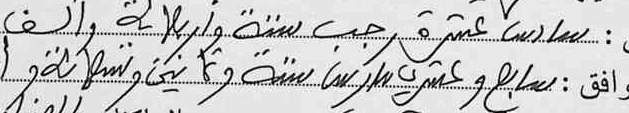 : سادس عشرة رجب سنة وأربعمائة وألف
وافق : سابع وعشرين مارس سنة وثمانين وتسعمائة و